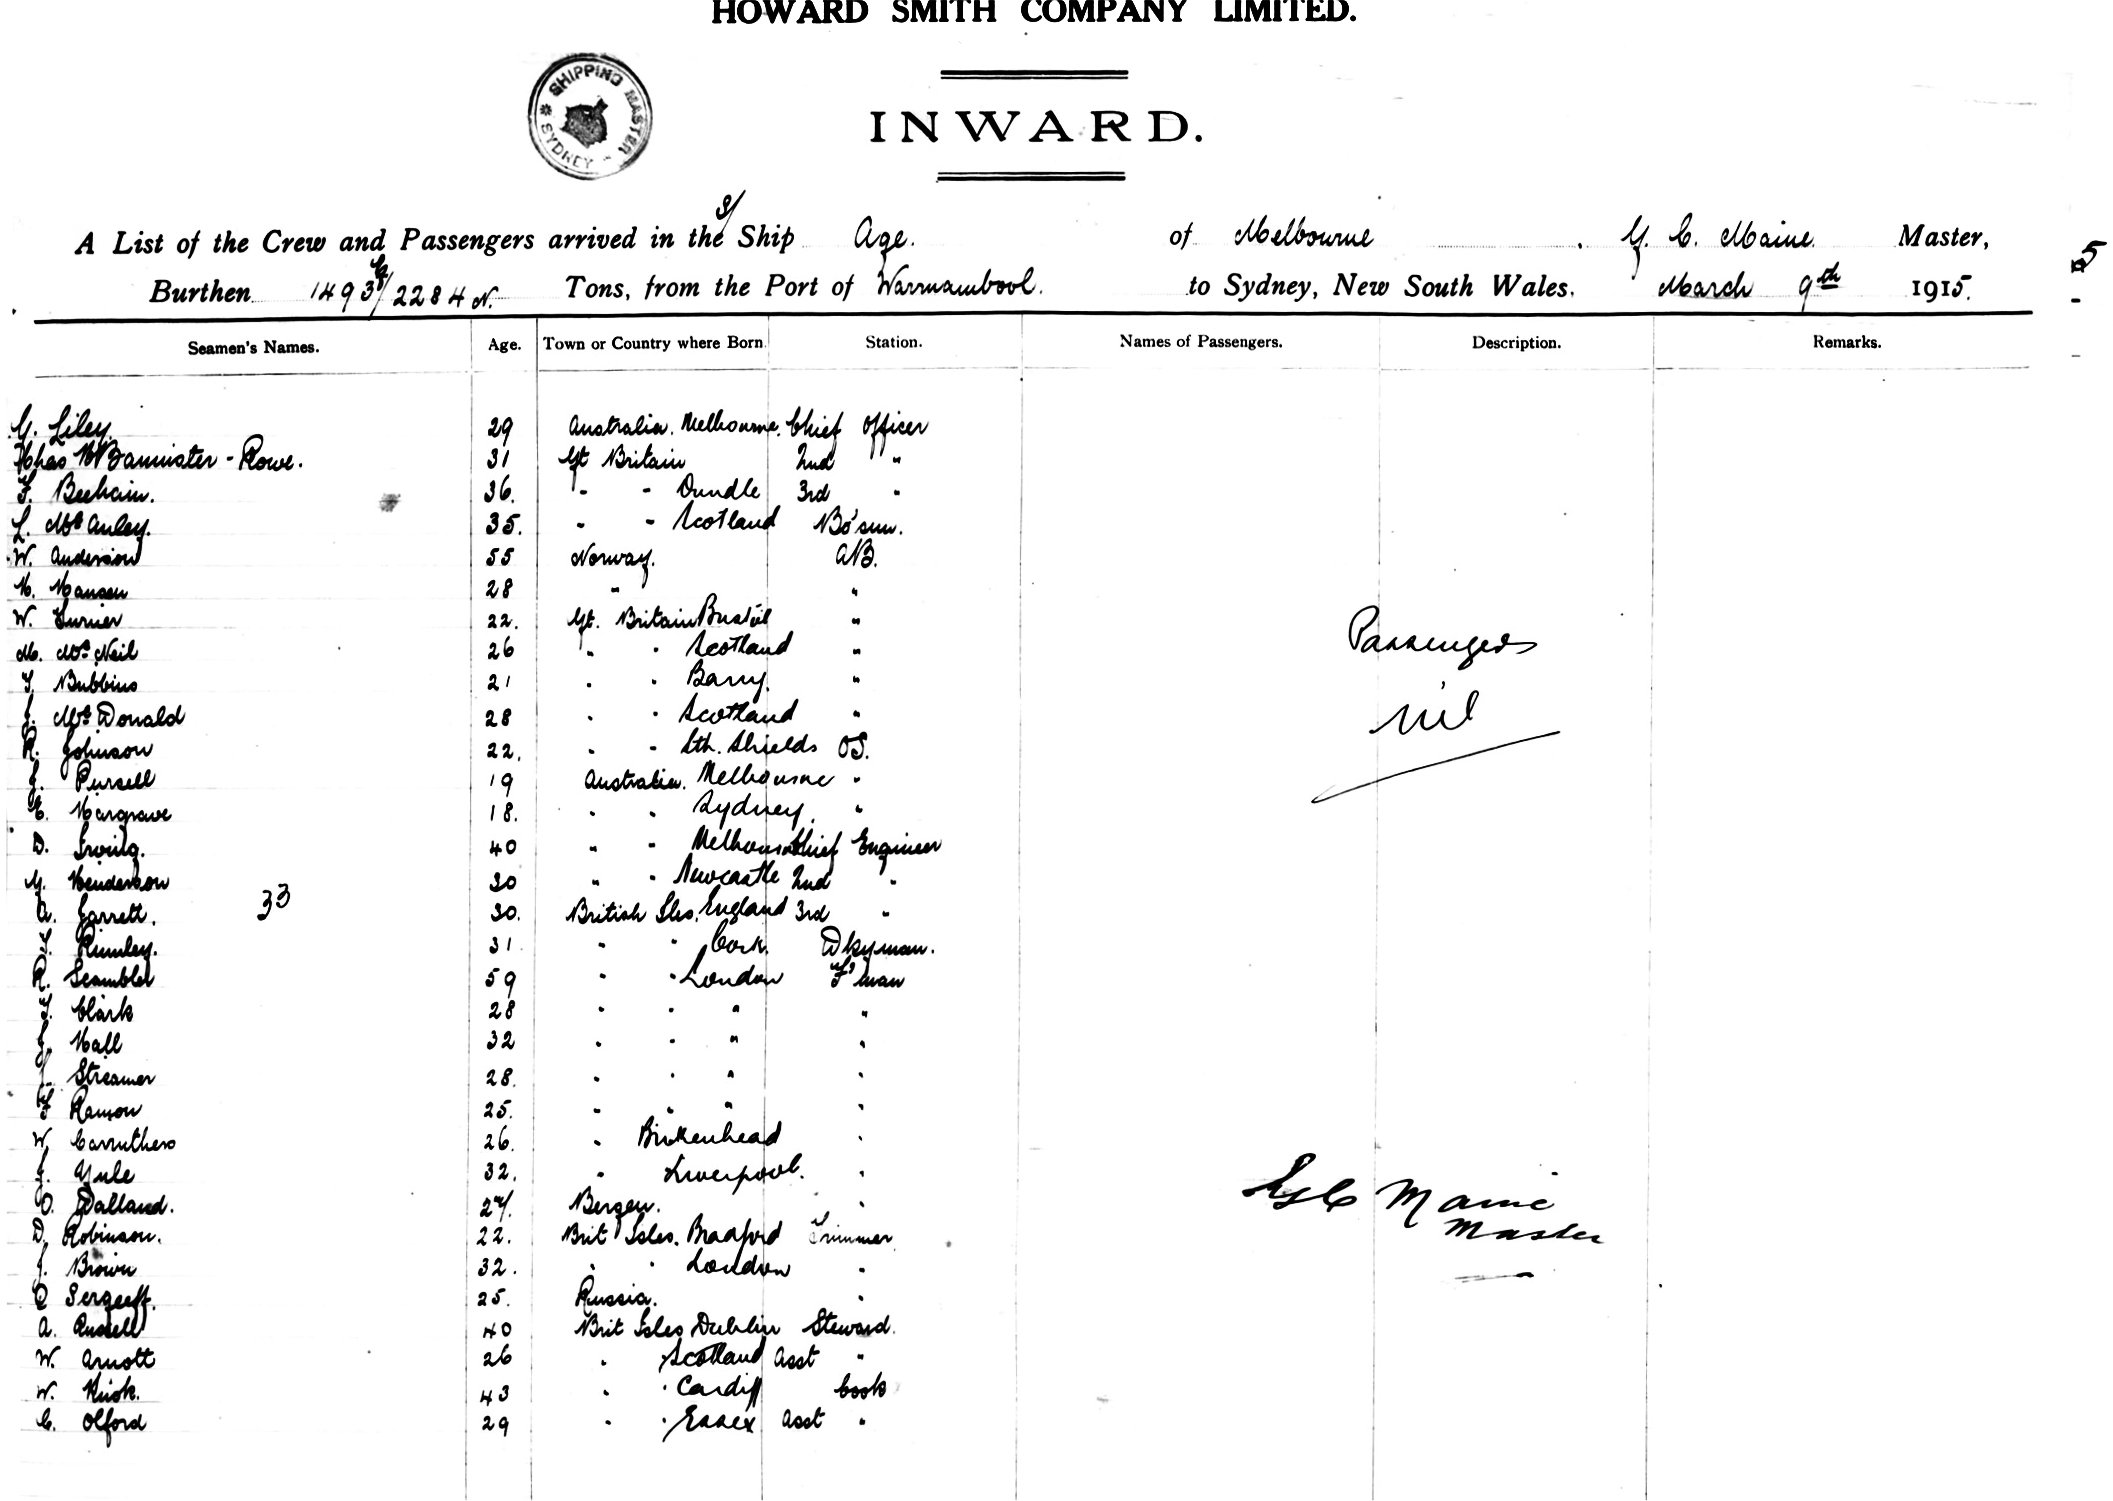 HOWARD SMITH COMPANY LIMITED.
SHIPPING MASTER SYDNEY
INWARD.
A List of the Crew and Passengers arrived in the S/ Ship Age. of Melbourne G. C. Maine. Master,
Burthen 1493 G/ 2284 N. Tons, from the Port of Warrnambool. to Sydney, New South Wales. March 9th 1915.
5
Seamen's Names. Age. Town or Country where Born. Station. Names of Passengers. Description. Remarks.
G. Liley. 29 Australia. Melbourne. Chief Officer
Chas Bannister-Rowe. 31 Gt Britain 2nd "
36. " " Dundle 3rd "
L. McAuley. 35. " " Scotland Bo'sun.
W. Anderson 55 Norway. AB.
H. Hansen 28 " "
W. Turner 22. Gt. Britain Bristol "
M. McNeil 26 " " Scotland "
T. Bubbins 21 " " Barry. "
J. McDonald 28 " " Scotland "
R. Johnson 22. " " Sth. Shields OS.
J. Pursell 19 Australia. Melbourne "
E. Hargrave 18. " " Sydney. "
D. Irving. 40 " " Melbourne Chief Engineer
G. Henderson 30 " " Newcastle 2nd "
33
A. Garrett. 30. British Isles. England 3rd "
T. Rumley. 31 " " Cork. Dkyman.
R. Scambler 59 " " London F'man
T. Clark 28 " " " "
J. Hall 32 " " " "
J. Streamer 28. " " " "
F. Ramon 25. " " " "
W. Carruthers 26. " Birkenhead "
J. Yule 32. " Liverpool. "
O. Dalland. 27. Bergen. "
D. Robinson. 22. Brit Isles. Bradford Trimmer
J. Brown 32. " " London "
Sergeeff. 25. Russia. "
A. Russell 40 Brit Isles Dublin Steward.
W. Arnott 26 " Scotland Asst "
W. 43 " " Cardiff Cook
C. Olford 29 " " Essex Asst "
Passengers
nil
G C Maine
Master